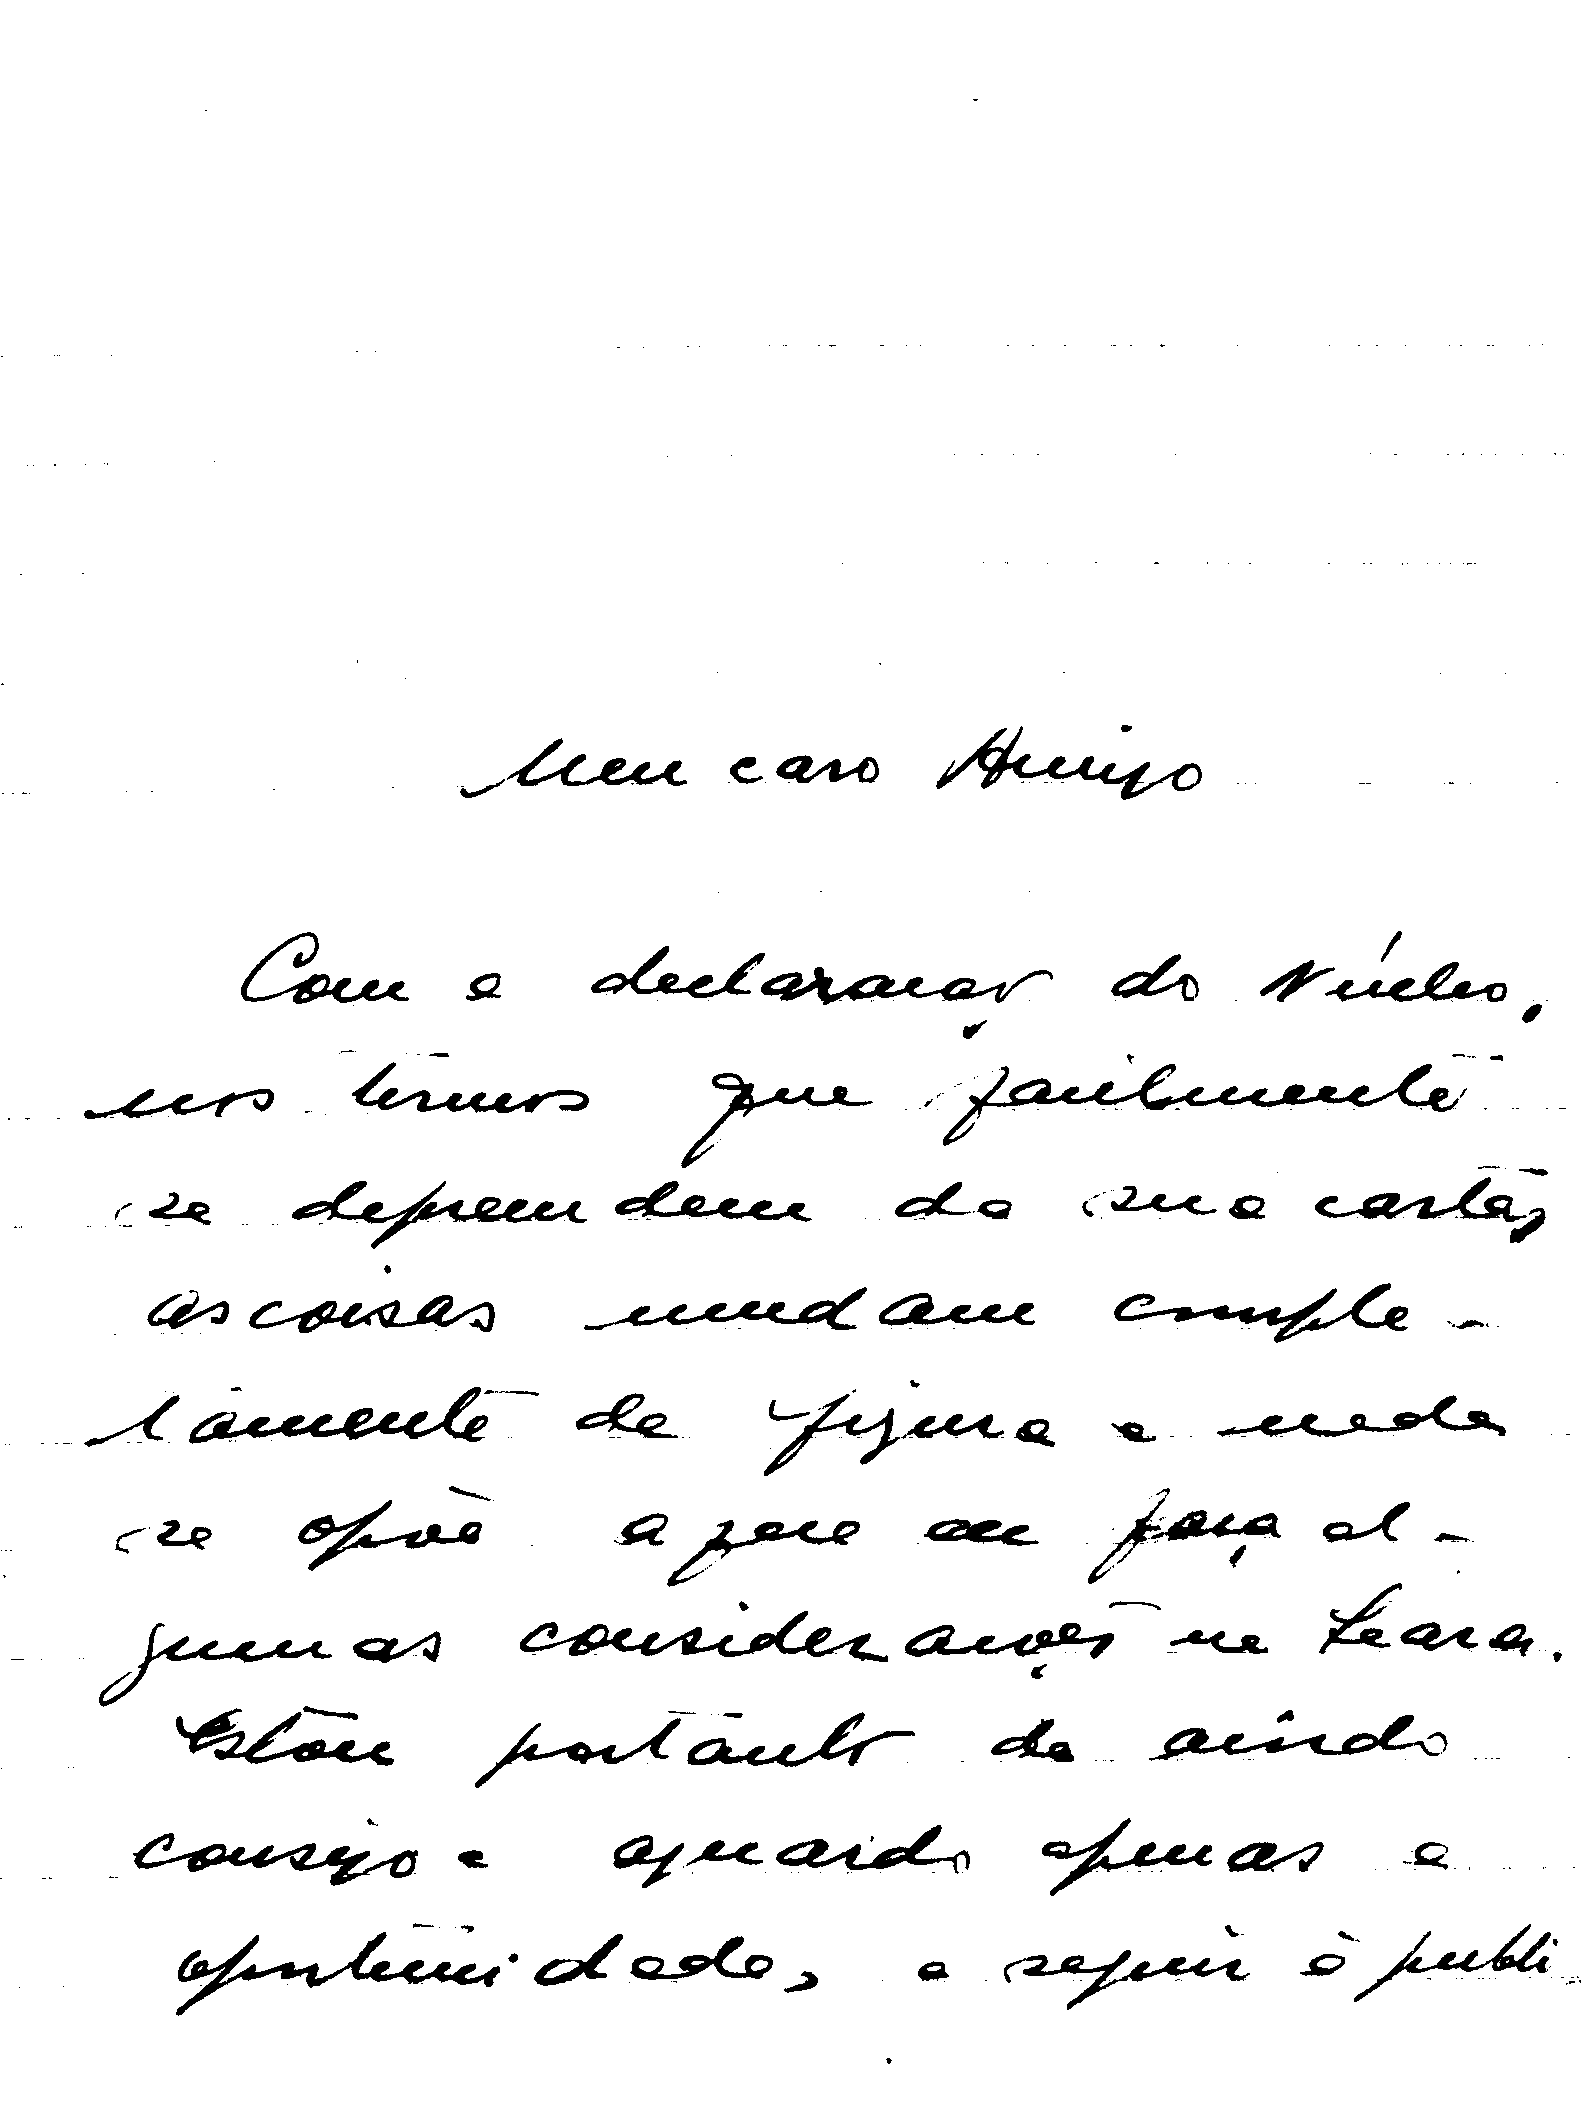 Meu caro Amigo
Com a declaração do Núcleo,
nos termos que facilmente
se depreendem da sua carta,
as coisas mudam comple-
tamente de figura e nada
se opõe a que eu faça al-
gumas considerações na Seara.
Estou portanto de acordo
consigo e aguardo apenas a
oportunidade, a seguir à publi